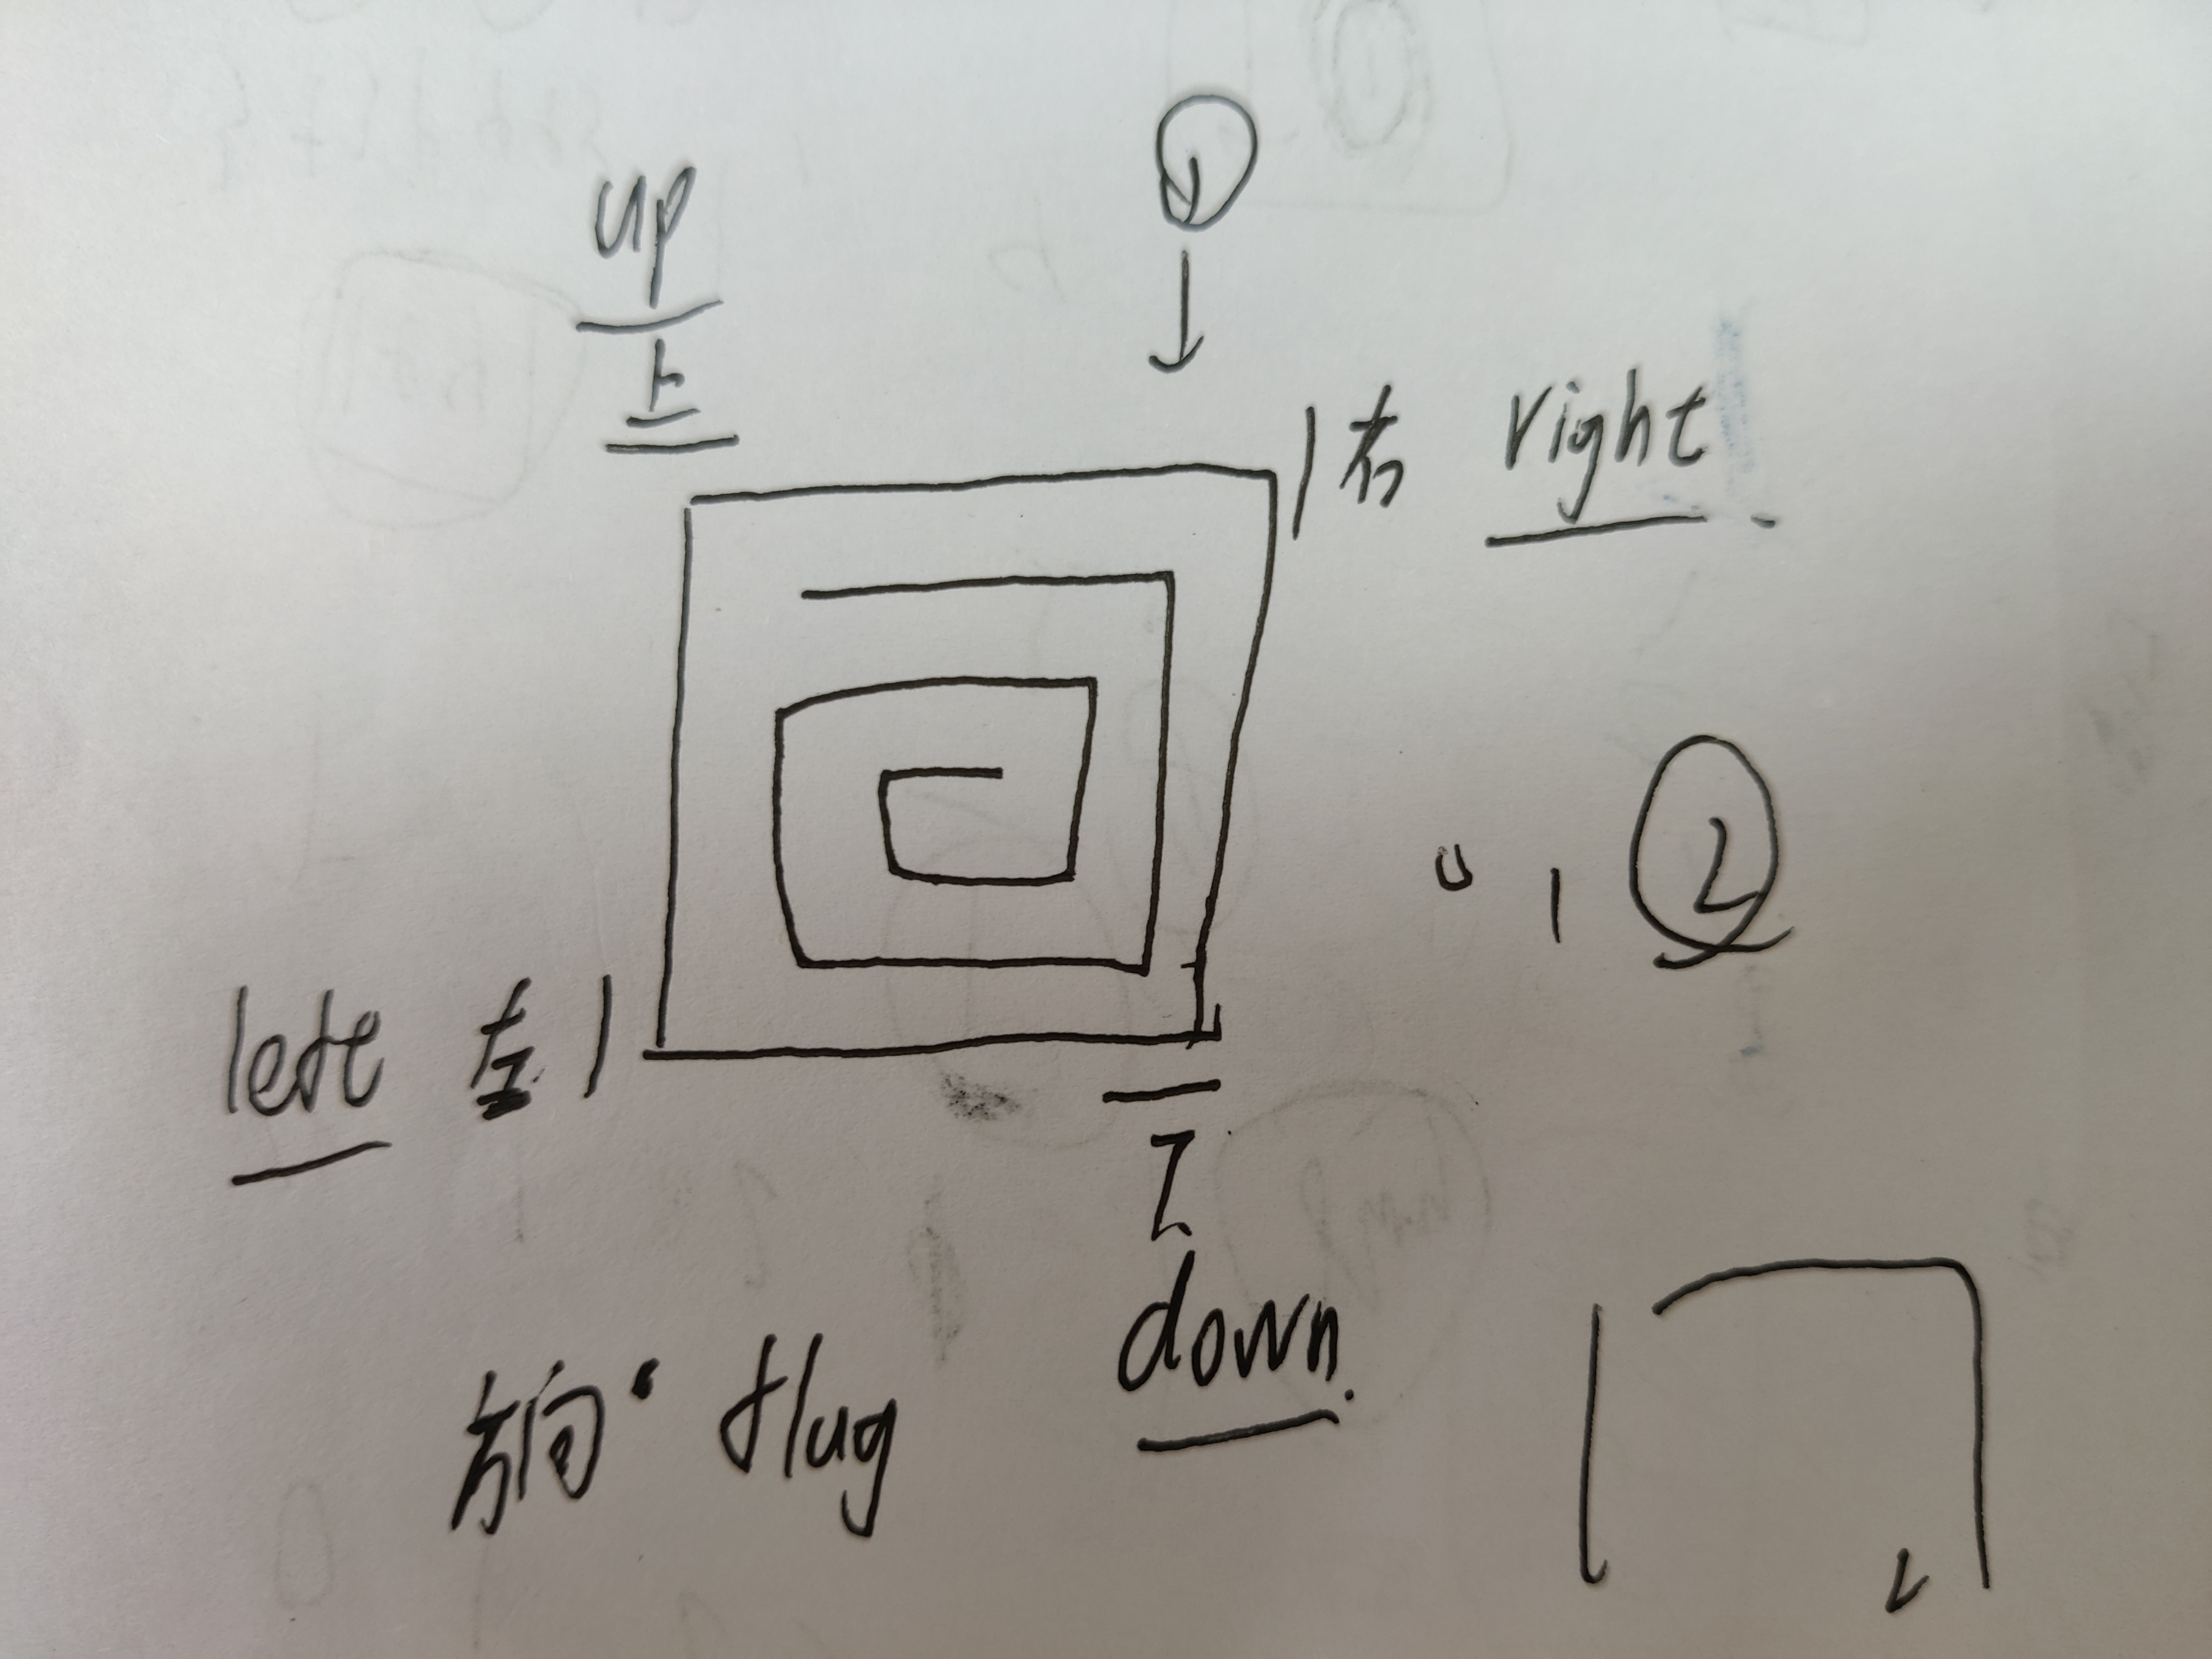 ①
up
上
右 right
0 1 ②
left 左
下
down.
方向 flag